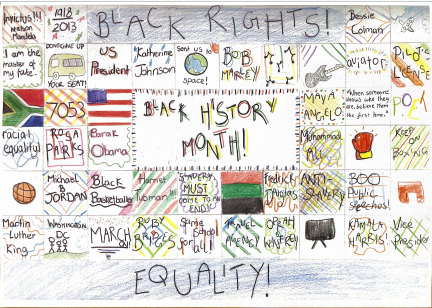 BLACK RIGHTS!
Invictus!!!
Nelson
Mandela
1918
2013
Bessie
Colman
I am the
master of
my fate..
DONT GIVE UP
YOUR SEAT!
US
President
Katherine
Johnson
Sent us to
space!
BOB
MARLEY
aviator
PILOTS
LICENSE
7053
BLACK HISTORY
MONTH!
MAYA
ANGELO
"When someone
shows who they
are, believe them
the first time."
POET
racial
equality!
ROSA
PARKS
Barak
Obama
Muhammad
Ali
KEEP
ON
BOXING
Michael
B
JORDAN
Black
Basketballer
Harriet
Tubman!!!
SLAVERY
MUST
COME TO AN
END!
Fredrick
Douglas
ANTI-
SLAVERY
800
Public
speeches!
Martin
Luther
King
WASHINGTON
DC
MARCH
on
RUBY
BRIDGES
Same
School
for all!
OPRAH
WINFREY
KAMALA
HARRIS!
Vice
President
EQUALITY!